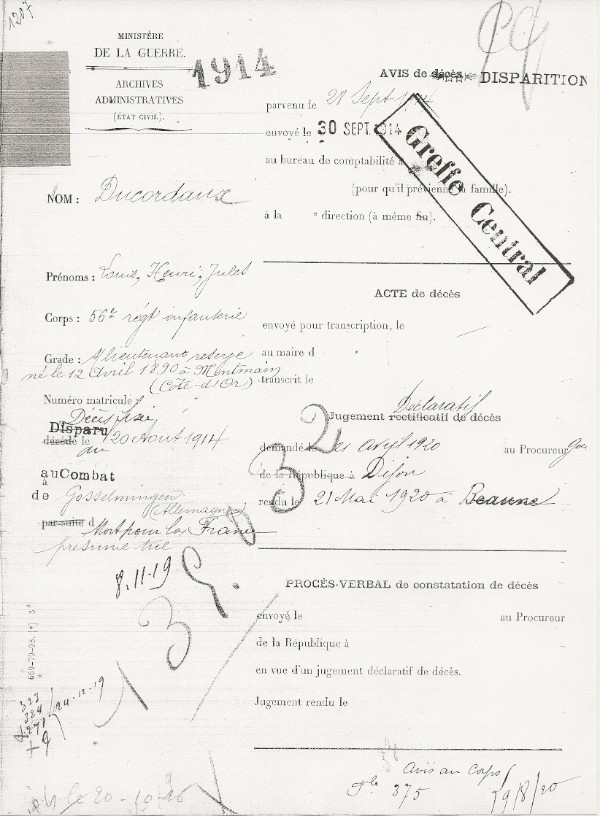 1287
MINISTÈRE
DE LA GUERRE.
ARCHIVES
ADMINISTRATIVES
(ÉTAT CIVIL).
1914
AVIS de décès DISPARITION
parvenu le 28 Sept 1914
envoyé le 30 SEPT. 1914
au bureau de comptabilité à
(pour qu'il prévienne la famille).
à la e direction (à même fin).
Greffe Central
NOM : Ducordaux
Prénoms : Louis, Henri, Jules
Corps : 56e régt infanterie
Grade : S/lieutenant reserve
né le 12 Avril 1890 à Montmain
(Côte-d'Or)
Numéro matricule
Disparu
décédé le 20 Aout 1914
au Combat
à
de Gosselmingen
(Allemagne)
par suite d Mort pour la France
présumé tué
8.11.19
ACTE de décès
envoyé pour transcription, le
au maire d
transcrit le
Déclaratif
Jugement rectificatif de décès
demandé le avril 1920 au Procureur
de la République à Dijon
rendu le 21 Mai 1920 à Beaune
PROCÉS-VERBAL de constatation de décès
envoyé le au Procureur
de la République à
en vue d'un jugement déclaratif de décès.
Jugement rendu le
660-79-08. [*] 3°
323
324
271
+ 9
24-12-19
le 20-10-16
Avis au Corps
375 19/8/20